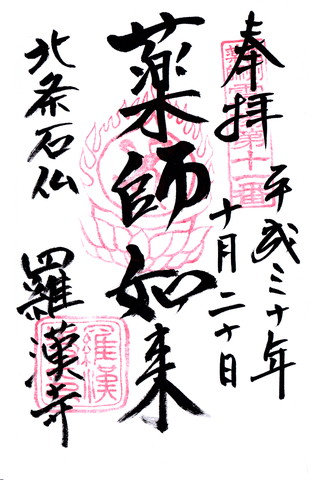 奉拝
平成三十年
十月二十日
薬師如来
北条石仏
羅漢寺
第十一番
羅漢